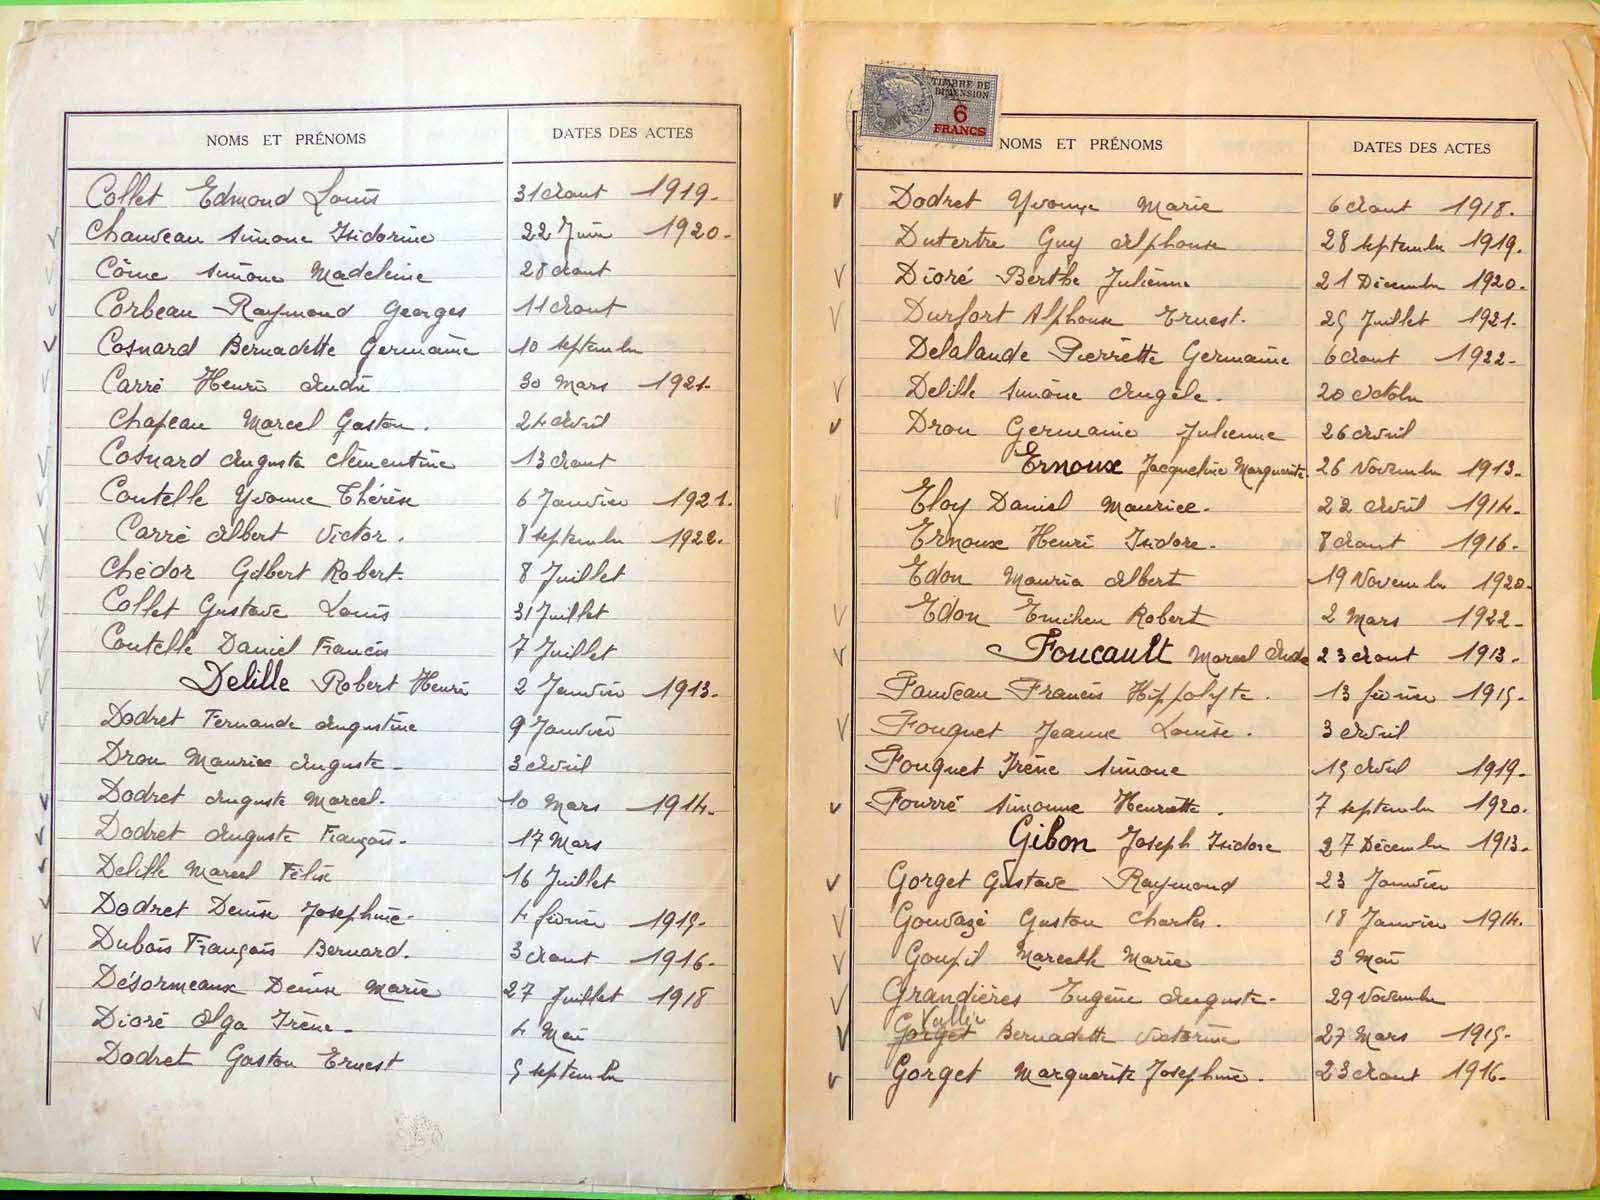 NOMS ET PRÉNOMS DATES DES ACTES
Collet Edmond Louis 31 Août 1919.
Chauveau Simone Isidorine 22 Juin 1920.
Côme Simone Madeleine 28 Août
Corbeau Raymond Georges 11 Août
Cosnard Bernadette Germaine 10 Septembre
Carré Henri André 30 Mars 1921.
Chapeau Marcel Gaston. 24 Avril
Cosnard Augusta Clémentine 13 Août
Coutelle Yvonne Thérèse 6 Janvier 1921.
Carré Albert Victor. 8 Septembre 1922.
Chédor Gilbert Robert. 8 Juillet
Collet Gustave Louis 31 Juillet
Coutelle Daniel Francis 7 Juillet
Delille Robert Henri 2 Janvier 1913.
Dodret Fernande Augustine 9 Janvier
Drou Maurice Auguste 3 Avril
Dodret Auguste Marcel. 10 Mars 1914.
Dodret Auguste François. 17 Mars
Delille Marcel Félix 16 Juillet
Dodret Denise Josephine. 4 février 1915.
Dubois François Bernard. 3 Août 1916.
Désormeaux Denise Marie 27 Juillet 1918
Dioré Olga Irène. 4 Mai
Dodret Gaston Ernest 5 Septembre
TIMBRE DE
DIMENSION
6
FRANCS
NOMS ET PRÉNOMS DATES DES ACTES
Dodret Yvonne Marie 6 Août 1918.
Dutertre Guy Alphonse 28 Septembre 1919.
Dioré Berthe Julienne 21 Décembre 1920.
Durfort Alphonse Ernest. 25 Juillet 1921.
Delalande Pierrette Germaine 6 Août 1922.
Delille Simone Angèle. 20 Octobre
Drou Germaine Julienne 26 Avril
Ernoux Jacqueline Marguerite. 26 Novembre 1913.
Eloy Daniel Maurice. 22 Avril 1914.
Ernoux Henri Isidore. 8 Août 1916.
Edon Maurice Albert 19 Novembre 1920.
Edon Emilien Robert 2 Mars 1922.
Foucault Marcel Aude 23 Août 1913.
Fauveau Francis Hippolyte. 13 février 1915.
Fouquet Jeanne Louise. 3 Avril
Fouquet Irène Simone 15 Avril 1919.
Fourré Simonne Henriette. 7 Septembre 1920.
Gibon Joseph Isidore 27 Décembre 1913.
Gorget Gustave Raymond 23 Janvier
Gouvazé Gaston Charles. 18 Janvier 1914.
Goupil Marcelle Marie 3 Mai
Grandières Eugène Auguste. 29 Novembre
Gorget Bernadette Victorine 27 Mars 1915.
Gorget Marguerite Josephine. 23 Août 1916.